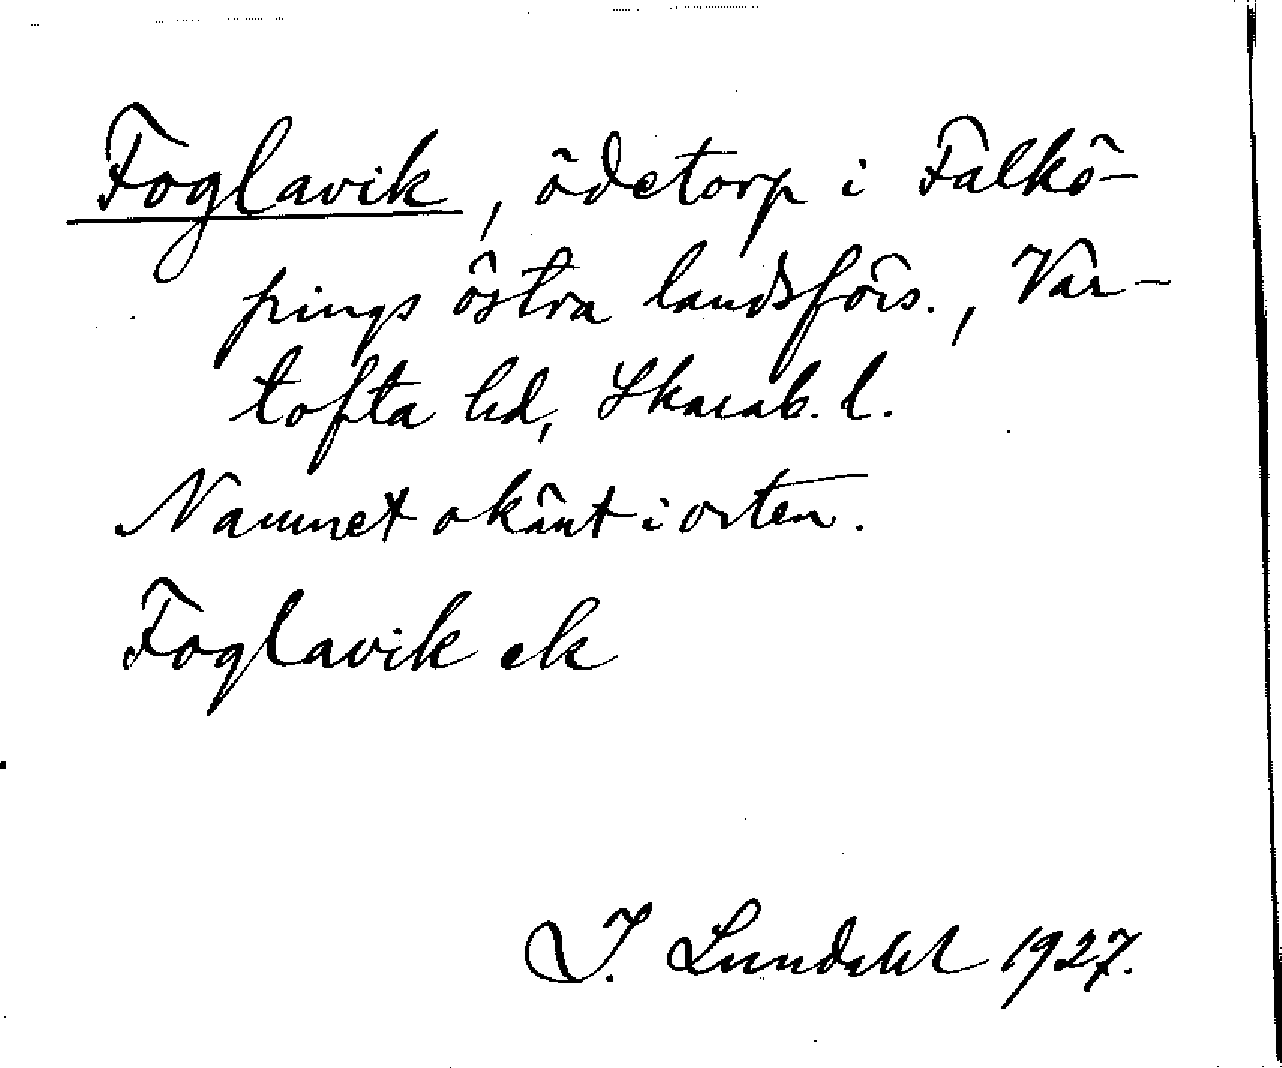 Foglavik, ödetorp i Falkö-
pings östra landsförs., Var-
tofta hd, Skarab. l.
Namnet okänt i orten.
Foglavik ek
I. Lundahl 1927.